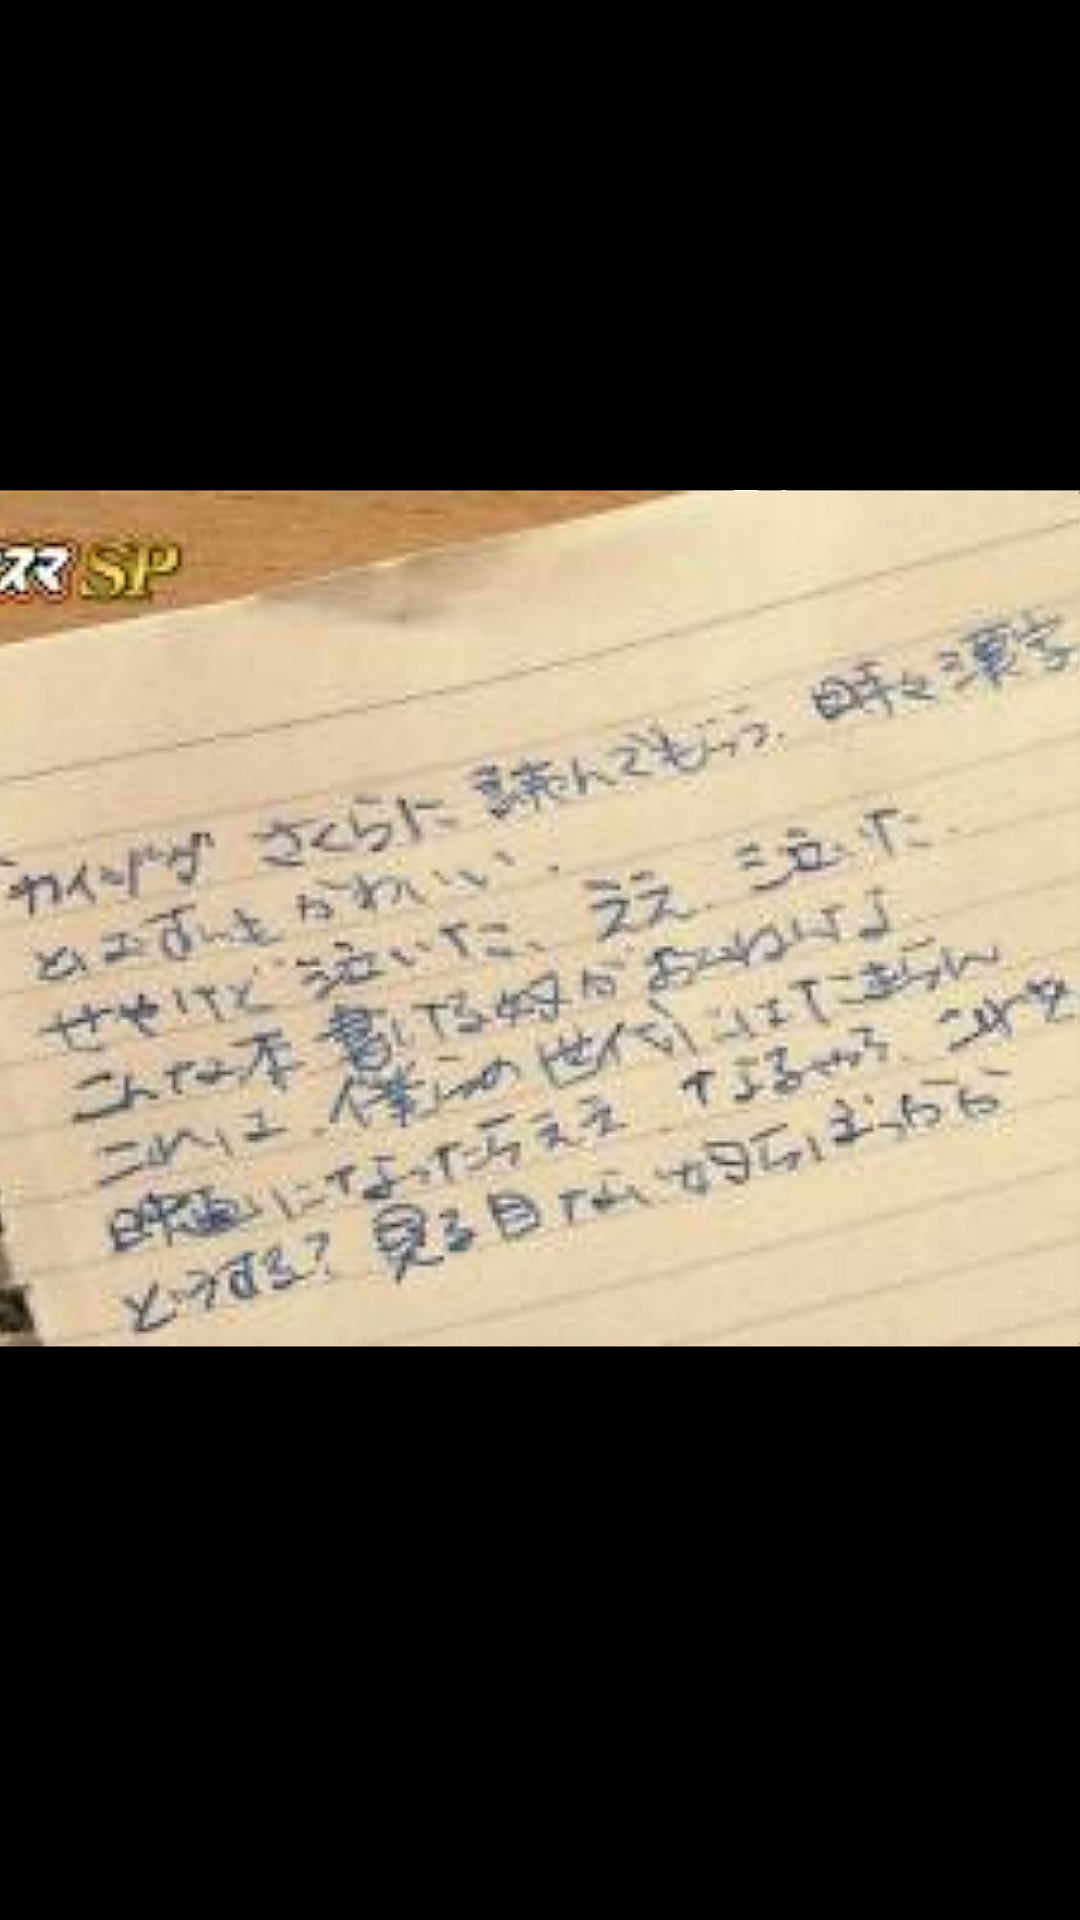 スマSP
カイジダ さくらに 読んでもらって、時々漢字
とばすのも かわいい、
せやけど 泣いた、ええ、泣いた、
こんな本 書ける奴が おんねんなよ
これは、僕らの世代にはたまらん
映画になったらええ、なるやろ、
どうする? 見る目ない